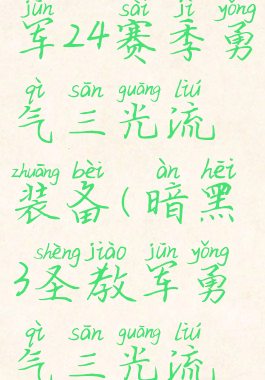 jūn sài jì yǒng
军24赛季勇
qì sān guāng liú
气三光流
zhuāng bèi àn hēi
装备(暗黑
shèng jiào jūn yǒng
3圣教军勇
qì sān guāng liú
气三光流